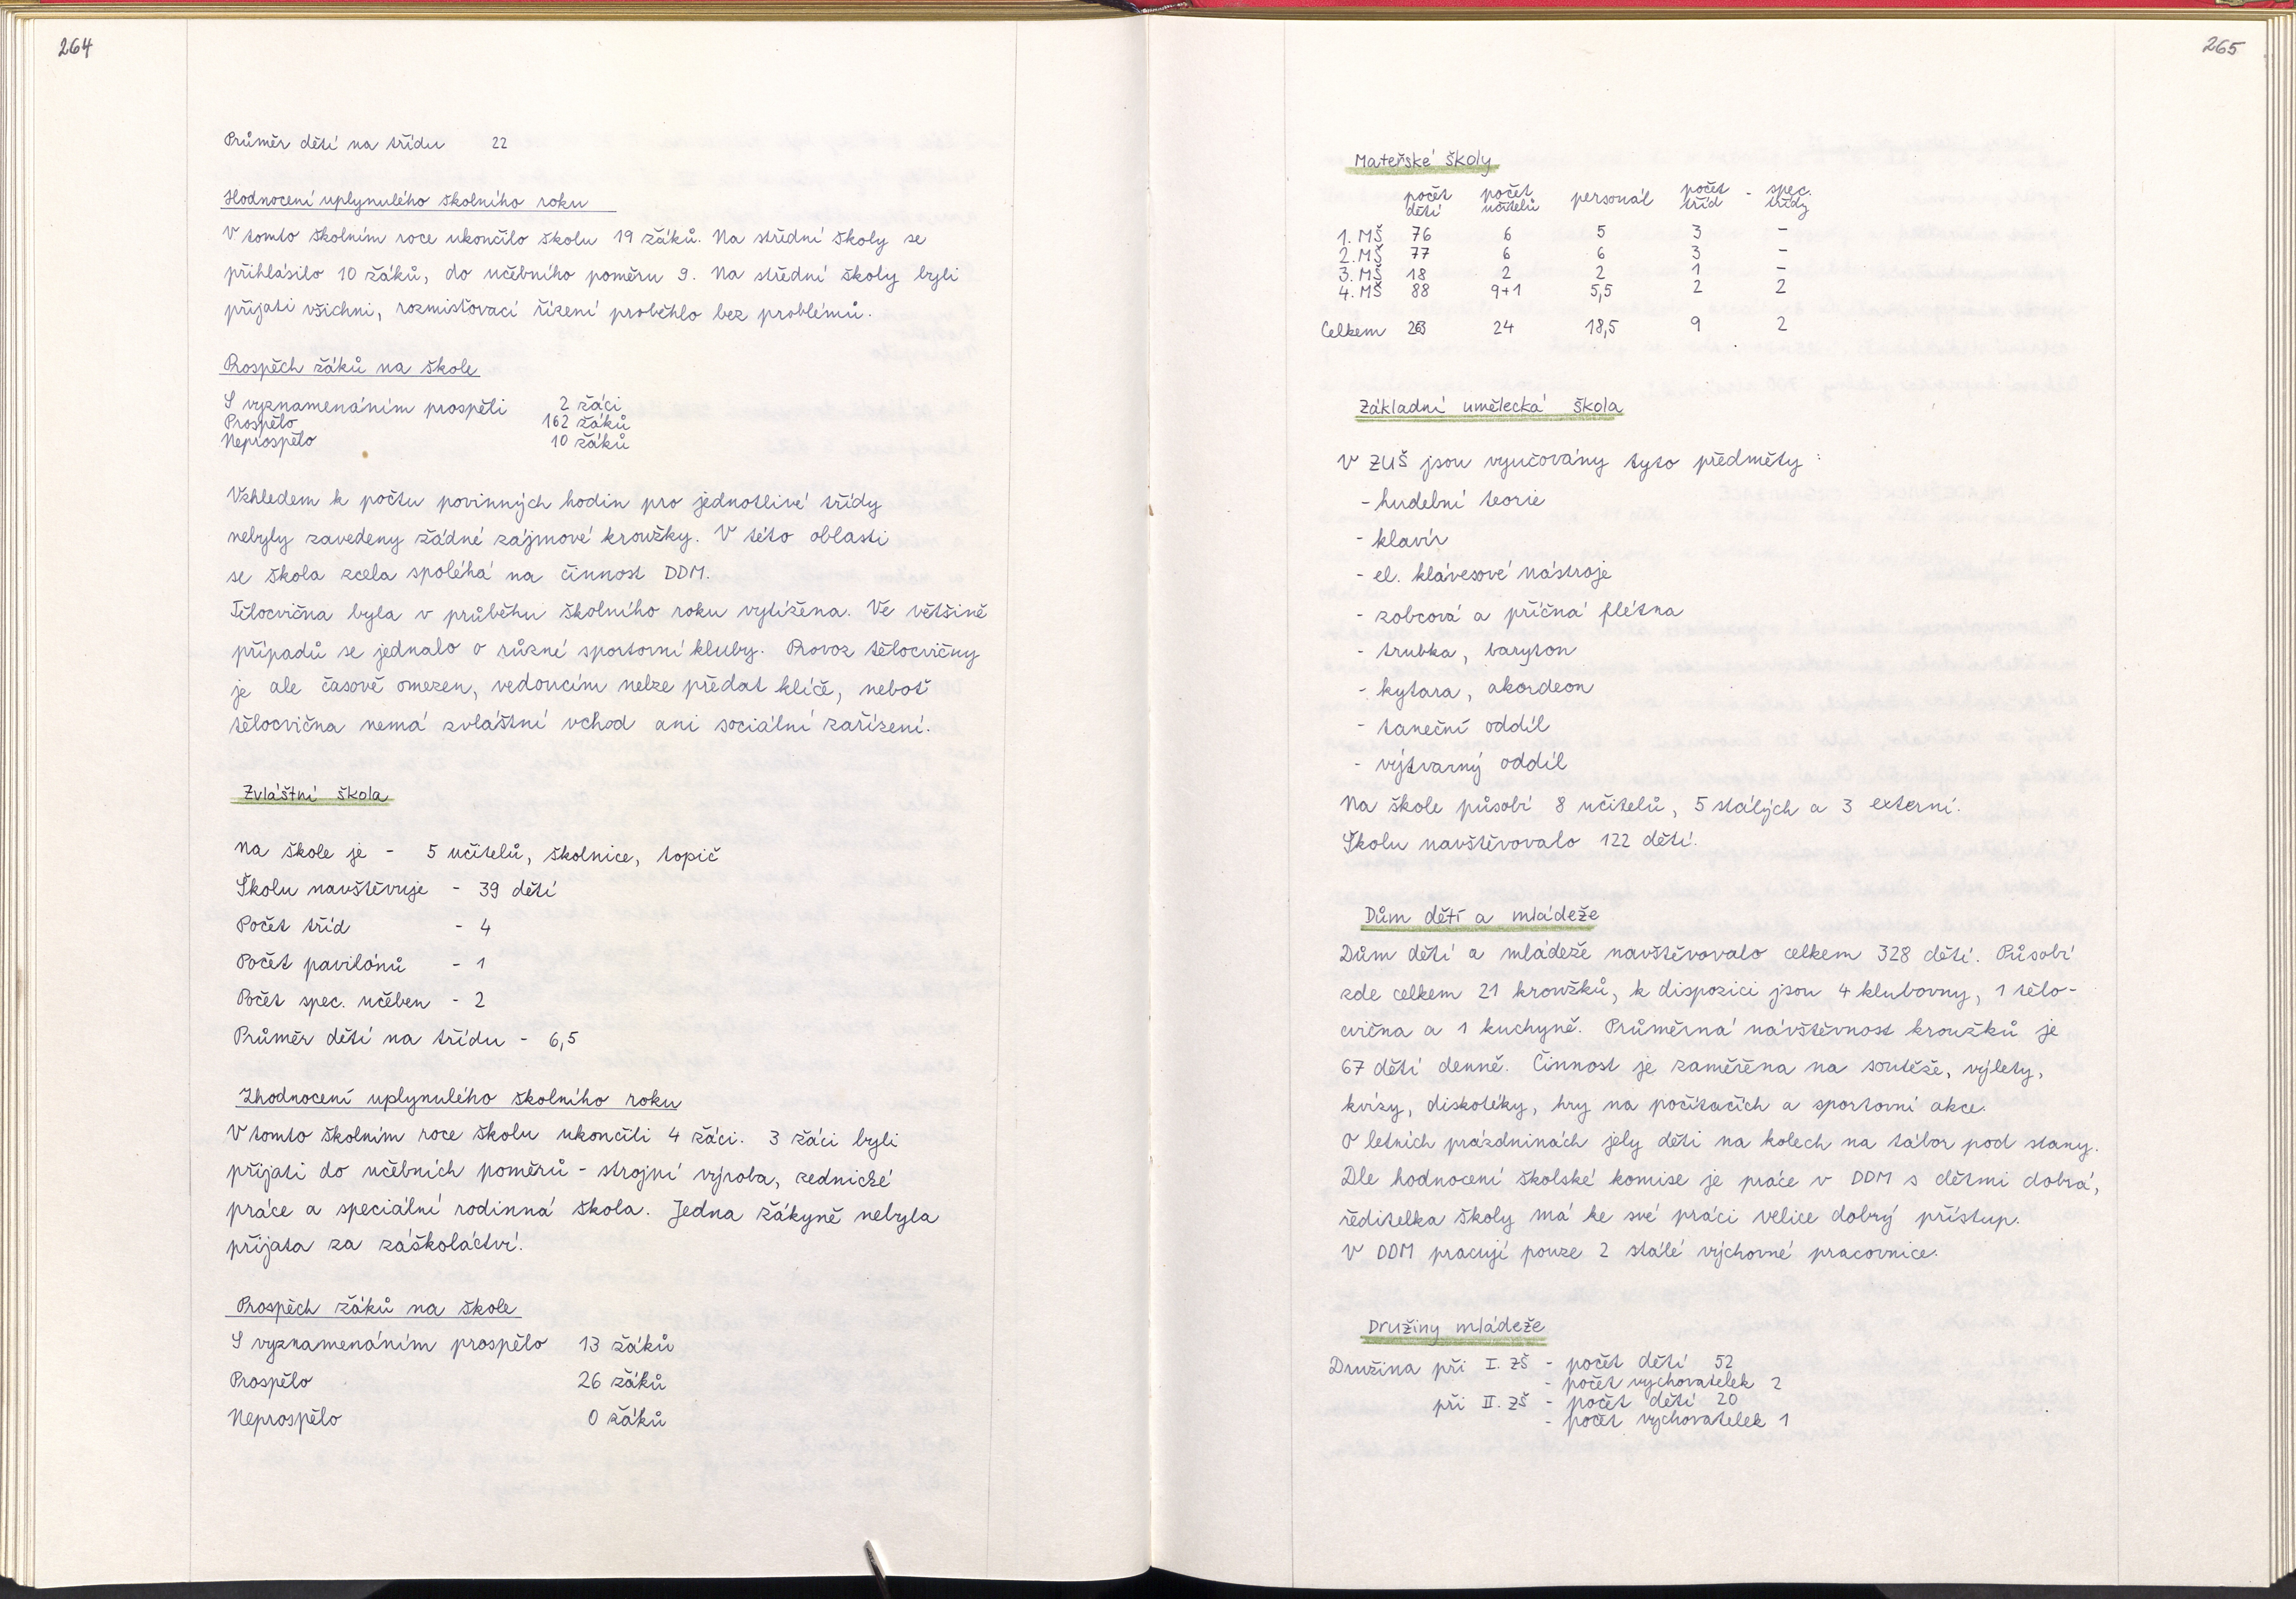 264
Průměr dětí na třídu 22
Hodnocení uplynulého školního roku
V tomto školním roce ukončilo školu 19 žáků. Na střední školy se
přihlásilo 10 žáků, do učebního poměru 9. Na střední školy byli
přijati všichni, rozmisťovací řízení proběhlo bez problémů.
Prospěch žáků na škole
S vyznamenáním prospěli 2 žáci
Prospělo 162 žáků
Neprospělo 10 žáků
Vzhledem k počtu povinných hodin pro jednotlivé třídy
nebyly zavedeny žádné zájmové kroužky. V této oblasti
se škola zcela spoléhá na činnost DDM.
Tělocvična byla v průběhu školního roku vytížena. Ve většině
případů se jednalo o různé sportovní kluby. Provoz tělocvičny
je ale časově omezen, vedoucím nelze předat klíče, neboť
tělocvična nemá zvláštní vchod ani sociální zařízení.
Zvláštní škola
Na škole je - 5 učitelů, školnice, topič
Školu navštěvuje - 39 dětí
Počet tříd - 4
Počet pavilónů - 1
Počet spec. učeben - 2
Průměr dětí na třídu - 6,5
Zhodnocení uplynulého školního roku
V tomto školním roce školu ukončili 4 žáci. 3 žáci byli
přijati do učebních poměrů - strojní výroba, zednické
práce a speciální rodinná škola. Jedna žákyně nebyla
přijata za záškoláctví.
Prospěch žáků na škole
S vyznamenáním prospělo 13 žáků
Prospělo 26 žáků
Neprospělo 0 žáků
265
Mateřské školy
počet dětí počet učitelů personál počet tříd - spec. třídy
1. MŠ 76 6 5 3 -
2. MŠ 77 6 6 3 -
3. MŠ 18 2 2 1 -
4. MŠ 88 9+1 5,5 2 2
Celkem 24 18,5 9 2
Základní umělecká škola
V ZUŠ jsou vyučovány tyto předměty :
- hudební teorie
- klavír
- el. klávesové nástroje
- zobcová a příčná flétna
- trubka, baryton
- kytara, akordeon
- taneční oddíl
- výtvarný oddíl
Na škole působí 8 učitelů, 5 stálých a 3 externí.
Školu navštěvovalo 122 dětí.
Dům dětí a mládeže
Dům dětí a mládeže navštěvovalo celkem 328 dětí. Působí
zde celkem 21 kroužků, k dispozici jsou 4 klubovny, 1 tělo-
cvična a 1 kuchyně. Průměrná návštěvnost kroužků je
67 dětí denně. Činnost je zaměřena na soutěže, výlety,
kvízy, diskotéky, hry na počítačích a sportovní akce.
O letních prázdninách jely děti na kolech na tábor pod stany.
Dle hodnocení školské komise je práce v DDM s dětmi dobrá,
ředitelka školy má ke své práci velice dobrý přístup.
V DDM pracují pouze 2 stálé výchovné pracovnice.
Družiny mládeže
Družina při I. ZŠ - počet dětí 52
- počet vychovatelek 2
při II. ZŠ - počet dětí 20
- počet vychovatelek 1